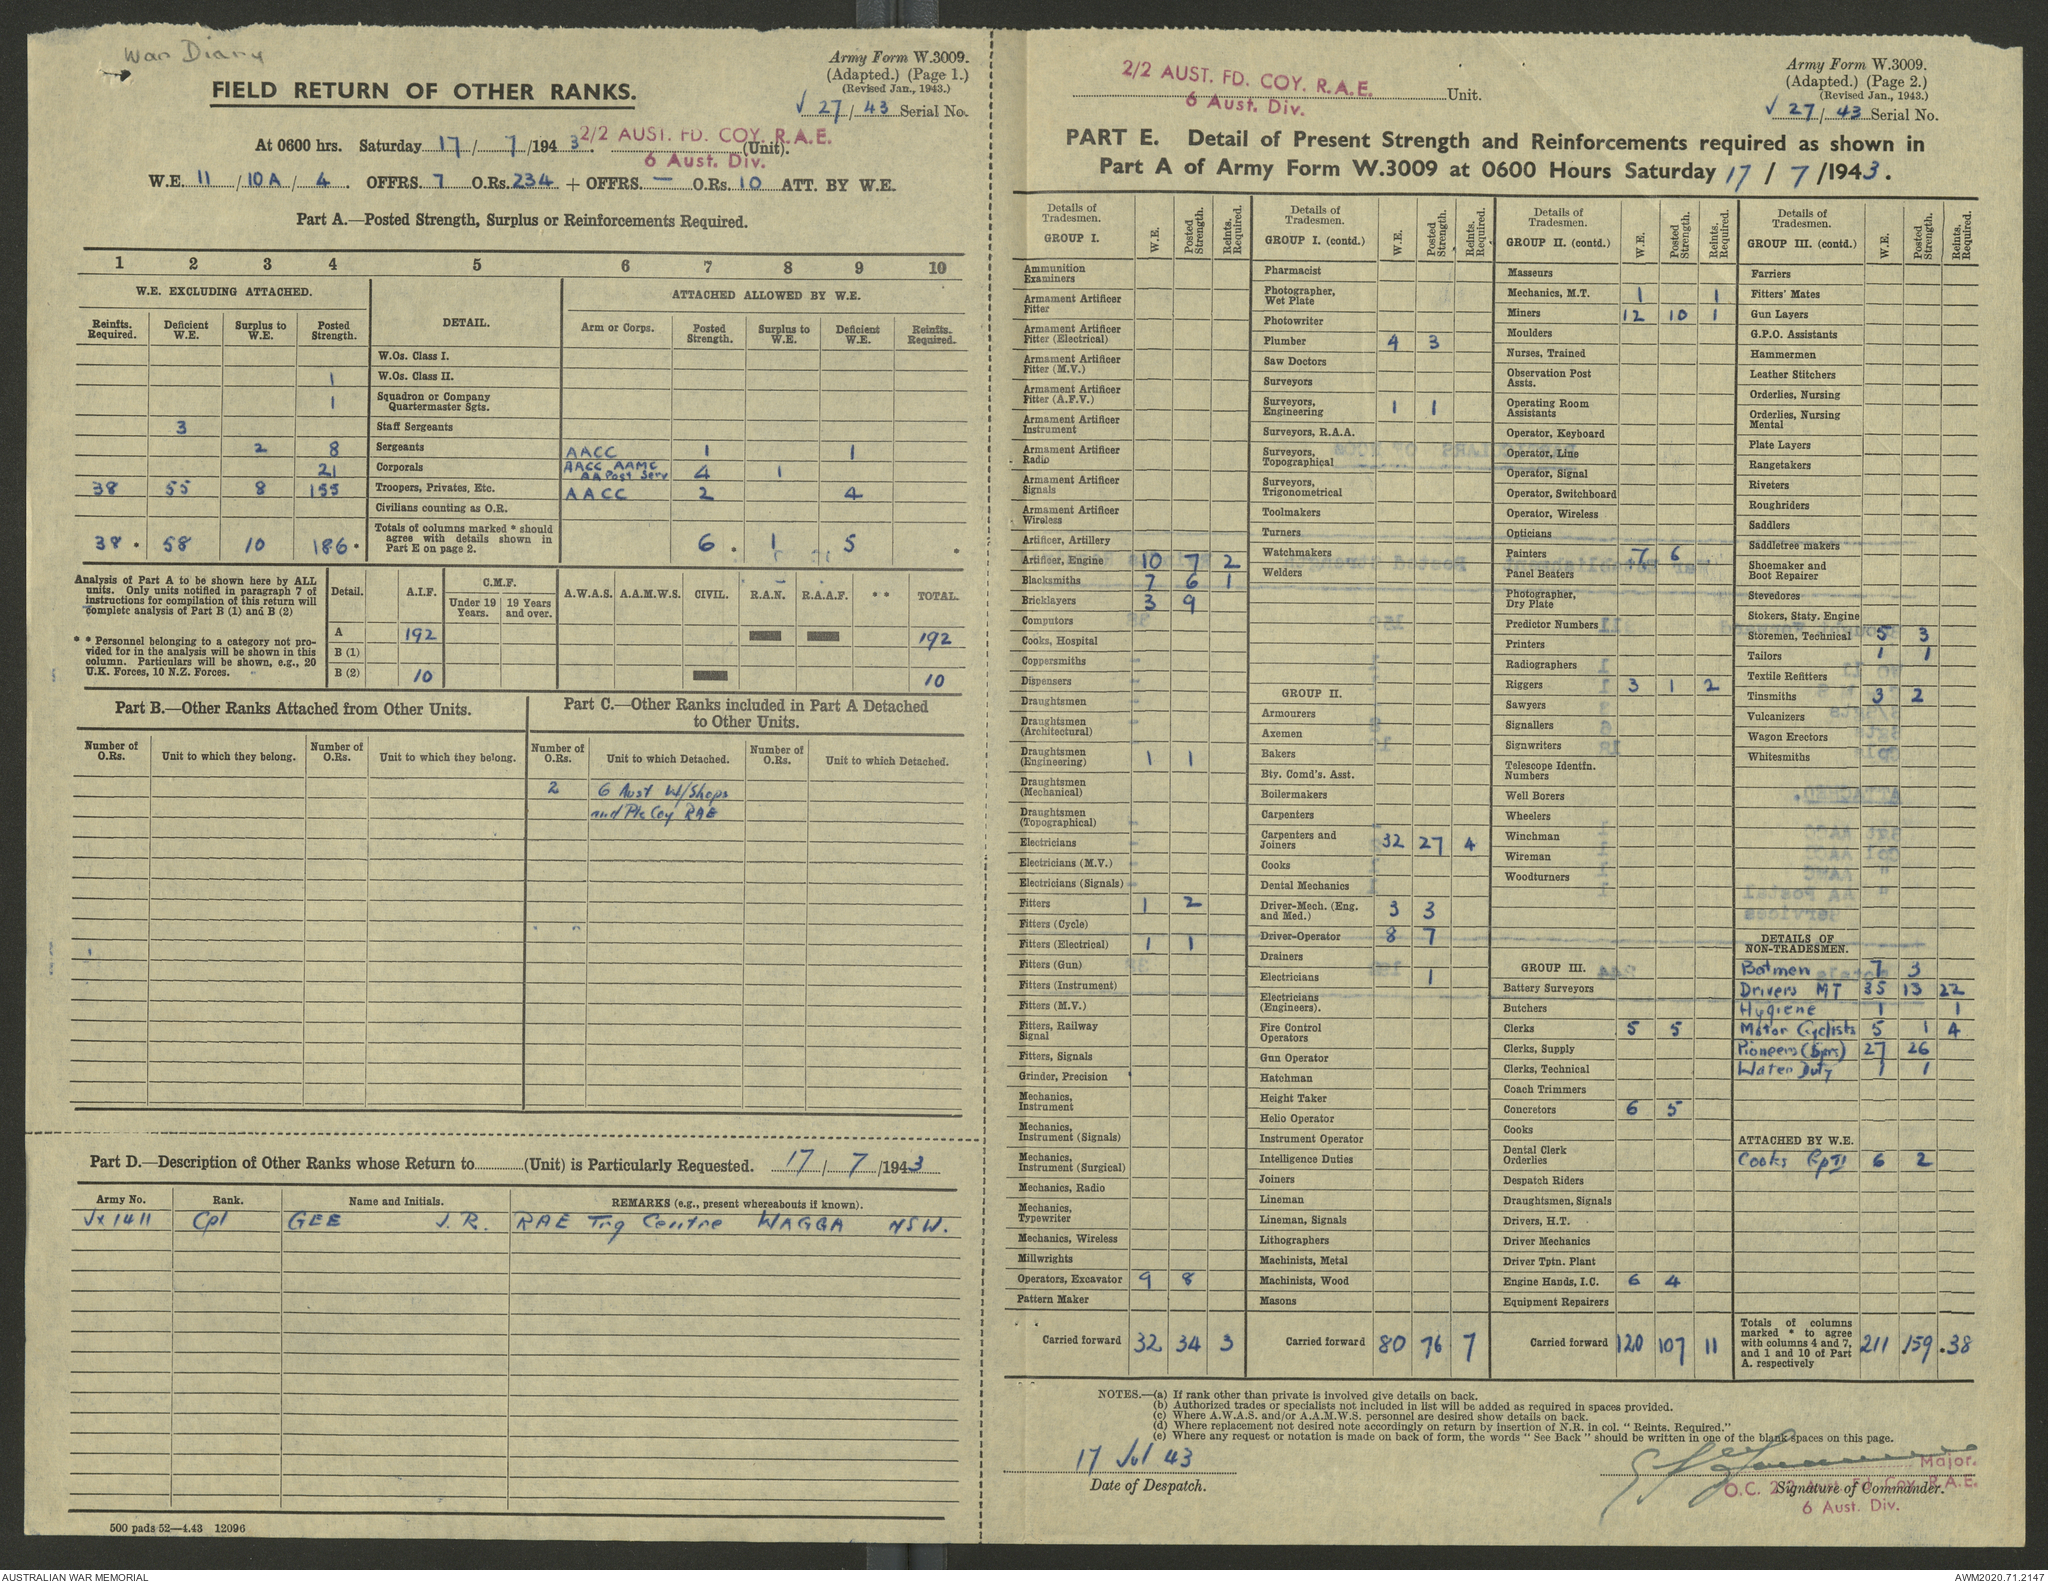 War Diary
Army Form W.3009.
(Adapted.) (Page 1.)
(Revised Jan., 1943.)
FIELD RETURN OF OTHER RANKS.
√ 27 / 43 Serial No.
At 0600 hrs. Saturday 17 / 7 /1943. 2/2 AUST. FD. COY. R.A.E. (Unit).
6 Aust. Div.
W.E. 11 / 10A / 4. OFFRS. 7 O.Rs. 234 + OFFRS. — O.Rs. 10 ATT. BY W.E.
Part A.—Posted Strength, Surplus or Reinforcements Required.
1 2 3 4 5 6 7 8 9 10
W.E. EXCLUDING ATTACHED. DETAIL. ATTACHED ALLOWED BY W.E.
Reinfts. Required. Deficient W.E. Surplus to W.E. Posted Strength. Arm or Corps. Posted Strength. Surplus to W.E. Deficient W.E. Reinfts. Required.
W.Os. Class I.
1 W.Os. Class II.
1 Squadron or Company Quartermaster Sgts.
3 Staff Sergeants
2 8 Sergeants AACC 1 1
21 Corporals AACC AAMC AA Post Serv 4 1
38 55 8 155 Troopers, Privates, Etc. AACC 2 4
Civilians counting as O.R.
38 58 10 186 Totals of columns marked * should agree with details shown in Part E on page 2. 6 1 5
Analysis of Part A to be shown here by ALL units. Only units notified in paragraph 7 of instructions for compilation of this return will complete analysis of Part B (1) and B (2)
* * Personnel belonging to a category not provided for in the analysis will be shown in this column. Particulars will be shown, e.g., 20 U.K. Forces, 10 N.Z. Forces.
Detail. A.I.F. C.M.F. Under 19 Years. 19 Years and over. A.W.A.S. A.A.M.W.S. CIVIL. R.A.N. R.A.A.F. * * TOTAL.
A 192 192
B (1)
B (2) 10 10
Part B.—Other Ranks Attached from Other Units.
Number of O.Rs. Unit to which they belong. Number of O.Rs. Unit to which they belong.
Part C.—Other Ranks included in Part A Detached to Other Units.
Number of O.Rs. Unit to which Detached. Number of O.Rs. Unit to which Detached.
2 6 Aust W/Shops
and Pk Coy RAE
Part D.—Description of Other Ranks whose Return to (Unit) is Particularly Requested. 17 / 7 /1943
Army No. Rank. Name and Initials. REMARKS (e.g., present whereabouts if known).
Vx1411 Cpl GEE J.R. RAE Trg Centre WAGGA NSW.
500 pads 52—4.43 12096
2/2 AUST. FD. COY. R.A.E. Unit.
6 Aust. Div.
Army Form W.3009.
(Adapted.) (Page 2.)
(Revised Jan., 1943.)
√ 27 / 43 Serial No.
PART E. Detail of Present Strength and Reinforcements required as shown in
Part A of Army Form W.3009 at 0600 Hours Saturday 17 / 7 /1943.
Details of Tradesmen. W.E. Posted Strength. Reints. Required.
GROUP I.
Ammunition Examiners
Armament Artificer Fitter
Armament Artificer Fitter (Electrical)
Armament Artificer Fitter (M.V.)
Armament Artificer Fitter (A.F.V.)
Armament Artificer Instrument
Armament Artificer Radio
Armament Artificer Signals
Armament Artificer Wireless
Artificer, Artillery
Artificer, Engine 10 7 2
Blacksmiths 7 6 1
Bricklayers 3 9
Computors
Cooks, Hospital
Coppersmiths
Dispensers
Draughtsmen
Draughtsmen (Architectural)
Draughtsmen (Engineering) 1 1
Draughtsmen (Mechanical)
Draughtsmen (Topographical)
Electricians
Electricians (M.V.)
Electricians (Signals)
Fitters 1 2
Fitters (Cycle)
Fitters (Electrical) 1 1
Fitters (Gun)
Fitters (Instrument)
Fitters (M.V.)
Fitters, Railway Signal
Fitters, Signals
Grinder, Precision
Mechanics, Instrument
Mechanics, Instrument (Signals)
Mechanics, Instrument (Surgical)
Mechanics, Radio
Mechanics, Typewriter
Mechanics, Wireless
Millwrights
Operators, Excavator 9 8
Pattern Maker
Carried forward 32 34 3
Details of Tradesmen. W.E. Posted Strength. Reints. Required.
GROUP I. (contd.)
Pharmacist
Photographer, Wet Plate
Photowriter
Plumber 4 3
Saw Doctors
Surveyors
Surveyors, Engineering 1 1
Surveyors, R.A.A.
Surveyors, Topographical
Surveyors, Trigonometrical
Toolmakers
Turners
Watchmakers
Welders
GROUP II.
Armourers
Axemen
Bakers
Bty. Comd's. Asst.
Boilermakers
Carpenters
Carpenters and Joiners 32 27 4
Cooks
Dental Mechanics
Driver-Mech. (Eng. and Med.) 3 3
Driver-Operator 8 7
Drainers
Electricians 1
Electricians (Engineers).
Fire Control Operators
Gun Operator
Hatchman
Height Taker
Helio Operator
Instrument Operator
Intelligence Duties
Joiners
Lineman
Lineman, Signals
Lithographers
Machinists, Metal
Machinists, Wood
Masons
Carried forward 80 76 7
Details of Tradesmen. W.E. Posted Strength. Reints. Required.
GROUP II. (contd.)
Masseurs
Mechanics, M.T. 1 1
Miners 12 10 1
Moulders
Nurses, Trained
Observation Post Assts.
Operating Room Assistants
Operator, Keyboard
Operator, Line
Operator, Signal
Operator, Switchboard
Operator, Wireless
Opticians
Painters 7 6
Panel Beaters
Photographer, Dry Plate
Predictor Numbers
Printers
Radiographers
Riggers 3 1 2
Sawyers
Signallers
Signwriters
Telescope Identfn. Numbers
Well Borers
Wheelers
Winchman
Wireman
Woodturners
GROUP III.
Battery Surveyors
Butchers
Clerks 5 5
Clerks, Supply
Clerks, Technical
Coach Trimmers
Concretors 6 5
Cooks
Dental Clerk Orderlies
Despatch Riders
Draughtsmen, Signals
Drivers, H.T.
Driver Mechanics
Driver Tptn. Plant
Engine Hands, I.C. 6 4
Equipment Repairers
Carried forward 120 107 11
Details of Tradesmen. W.E. Posted Strength. Reints. Required.
GROUP III. (contd.)
Farriers
Fitters' Mates
Gun Layers
G.P.O. Assistants
Hammermen
Leather Stitchers
Orderlies, Nursing
Orderlies, Nursing Mental
Plate Layers
Rangetakers
Riveters
Roughriders
Saddlers
Saddletree makers
Shoemaker and Boot Repairer
Stevedores
Stokers, Staty. Engine
Storemen, Technical 5 3
Tailors 1 1
Textile Refitters
Tinsmiths 3 2
Vulcanizers
Wagon Erectors
Whitesmiths
DETAILS OF NON-TRADESMEN.
Batmen 7 3
Drivers MT 35 13 22
Hygiene 1 1
Motor Cyclists 5 1 4
Pioneers (Sprs) 27 26
Water Duty 1 1
ATTACHED BY W.E.
Cooks GpII 6 2
Totals of columns marked * to agree with columns 4 and 7, and 1 and 10 of Part A. respectively 211 159 38
NOTES.—(a) If rank other than private is involved give details on back.
(b) Authorized trades or specialists not included in list will be added as required in spaces provided.
(c) Where A.W.A.S. and/or A.A.M.W.S. personnel are desired show details on back.
(d) Where replacement not desired note accordingly on return by insertion of N.R. in col. "Reints. Required."
(e) Where any request or notation is made on back of form, the words "See Back" should be written in one of the blank spaces on this page.
17 Jul 43
Date of Despatch.
Major.
O.C. 2/2 Aust. Fd. Coy. R.A.E.
Signature of Commander.
6 Aust. Div.
AUSTRALIAN WAR MEMORIAL
AWM2020.71.2147